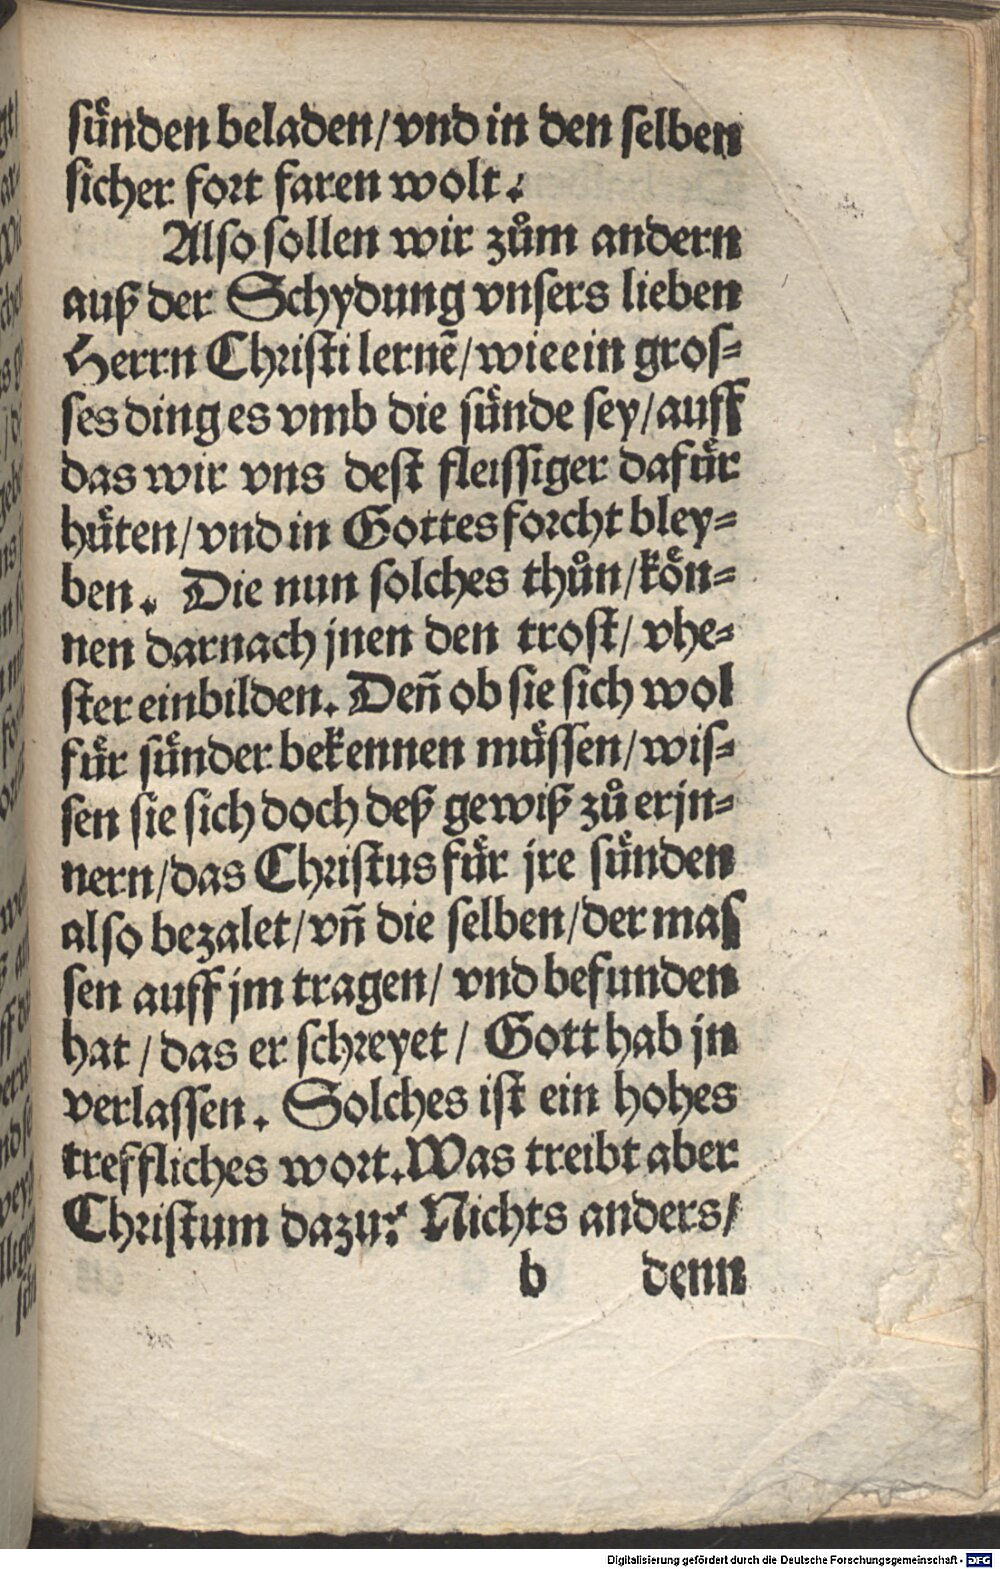 suͤnden beladen/vnd in den selben
sicher fort faren wolt.
Also sollen wir zuͦm andern
auß der Schydung vnsers lieben
Herrn Christi lernē/wie ein gros⸗
ses ding es vmb die suͤnde sey/auff
das wir vns dest fleissiger dafuͤr
huͤten/vnd in Gottes forcht bley⸗
ben. Die nun solches thuͦn/koͤn⸗
nen darnach jnen den trost/ vhe⸗
ster einbilden. Deñ ob sie sich wol
fuͤr suͤnder bekennen muͤssen/wis⸗
sen sie sich doch deß gewiß zuͦ erjn⸗
nern/das Christus fuͤr jre suͤnden
also bezalet/vñ die selben/der mas
sen auff jm tragen/ vnd befunden
hat/das er schreyet/ Gott hab jn
verlassen. Solches ist ein hohes
treffliches wort. Was treibt aber
Christum dazu? Nichts anders/
b denn
Digitalisierung gefördert durch die Deutsche Forschungsgemeinschaft - DFG